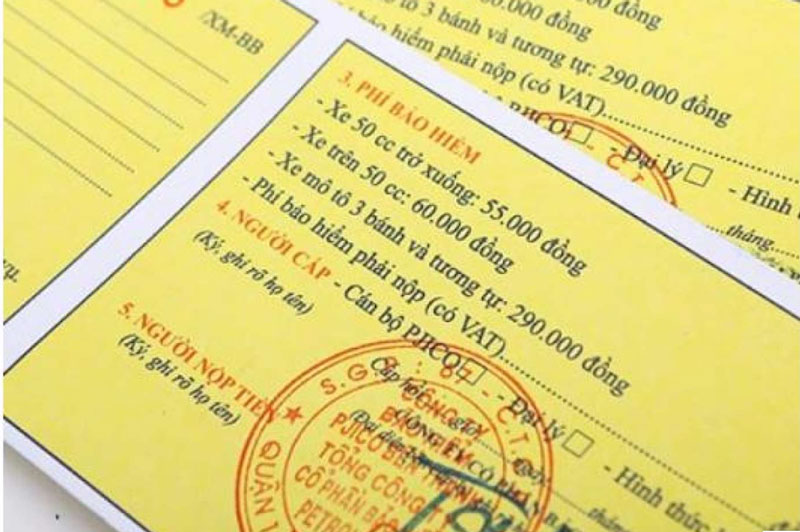 /XM-BB
00.000 đồng
bánh và tương tự: 290.000 đồng
bảo hiểm phải nộp (có VAT)
PJICO □ - Đại lý □ - Hình
tháng
3. PHÍ BẢO HIỂM
- Xe 50 cc trở xuống: 55.000 đồng
- Xe trên 50 cc: 60.000 đồng
- Xe mô tô 3 bánh và tương tự: 290.000 đồng
- Phí bảo hiểm phải nộp (có VAT)
4. NGƯỜI CẤP - Cán bộ PJICO □ - Đại lý □ - Hình thức
(Ký, ghi rõ họ tên)
Cấp hồi giờ tháng
5. NGƯỜI NỘP TIỀN
(Ký, ghi rõ họ tên)
S.G C.T.C
CÔNG TY
BẢO HIỂM
PJICO BẾN THÀNH
TỔNG CÔNG TY
CỔ PHẦN BẢO
PETRO
QUẬN 1